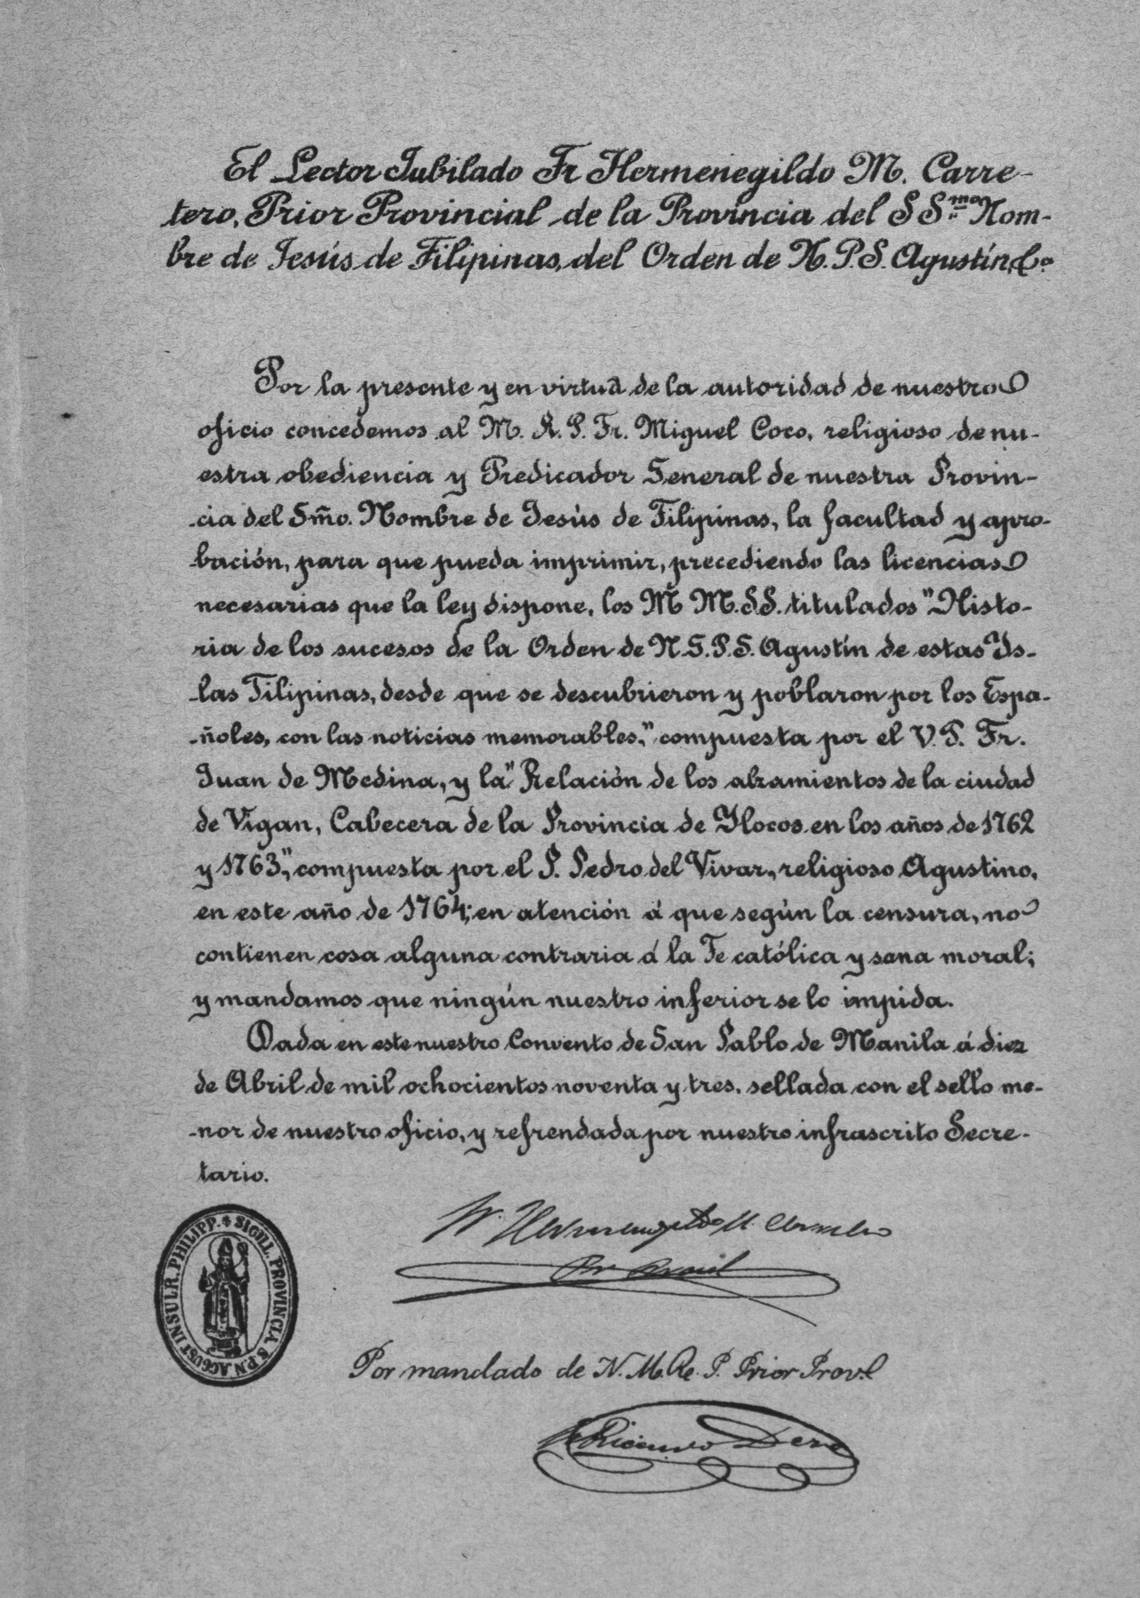 El Lector Jubilado Fr Hermenegildo M. Carre-
tero, Prior Provincial de la Provincia del SS.mo Nom-
bre de Jesús de Filipinas, del Orden de N.P.S. Agustín, &.a
Por la presente y en virtud de la autoridad de nuestro
oficio concedemos al M. R. P. Fr. Miguel Coco, religioso de nu-
estra obediencia y Predicador General de nuestra Provin-
cia del Smo. Nombre de Jesús de Filipinas, la facultad y apro-
bación, para que pueda imprimir, precediendo las licencias
necesarias que la ley dispone, los M M.S.S. titulados "Histo-
ria de los sucesos de la Orden de N.G.P.S. Agustín de estas Is-
las Filipinas, desde que se descubrieron y poblaron por los Espa-
ñoles, con las noticias memorables," compuesta por el V. P. Fr.
Juan de Medina, y la "Relación de los alzamientos de la ciudad
de Vigan, Cabecera de la Provincia de Ylocos en los años de 1762
y 1763," compuesta por el P. Pedro del Vivar, religioso Agustino,
en este año de 1764; en atención á que según la censura, no
contienen cosa alguna contraria á la Fe católica y sana moral;
y mandamos que ningún nuestro inferior se lo impida.
Dada en este nuestro Convento de San Pablo de Manila á diez
de Abril de mil ochocientos noventa y tres, sellada con el sello me-
nor de nuestro oficio, y refrendada por nuestro infrascrito Secre-
tario.
Fr. Hermenegildo M. Carretero
Pr. Provil
SIGILL. PROVINCIA. S.P.N. AGGUST. INSULR. PHILIPP.
Por mandado de N. M. R. P. Prior Provl